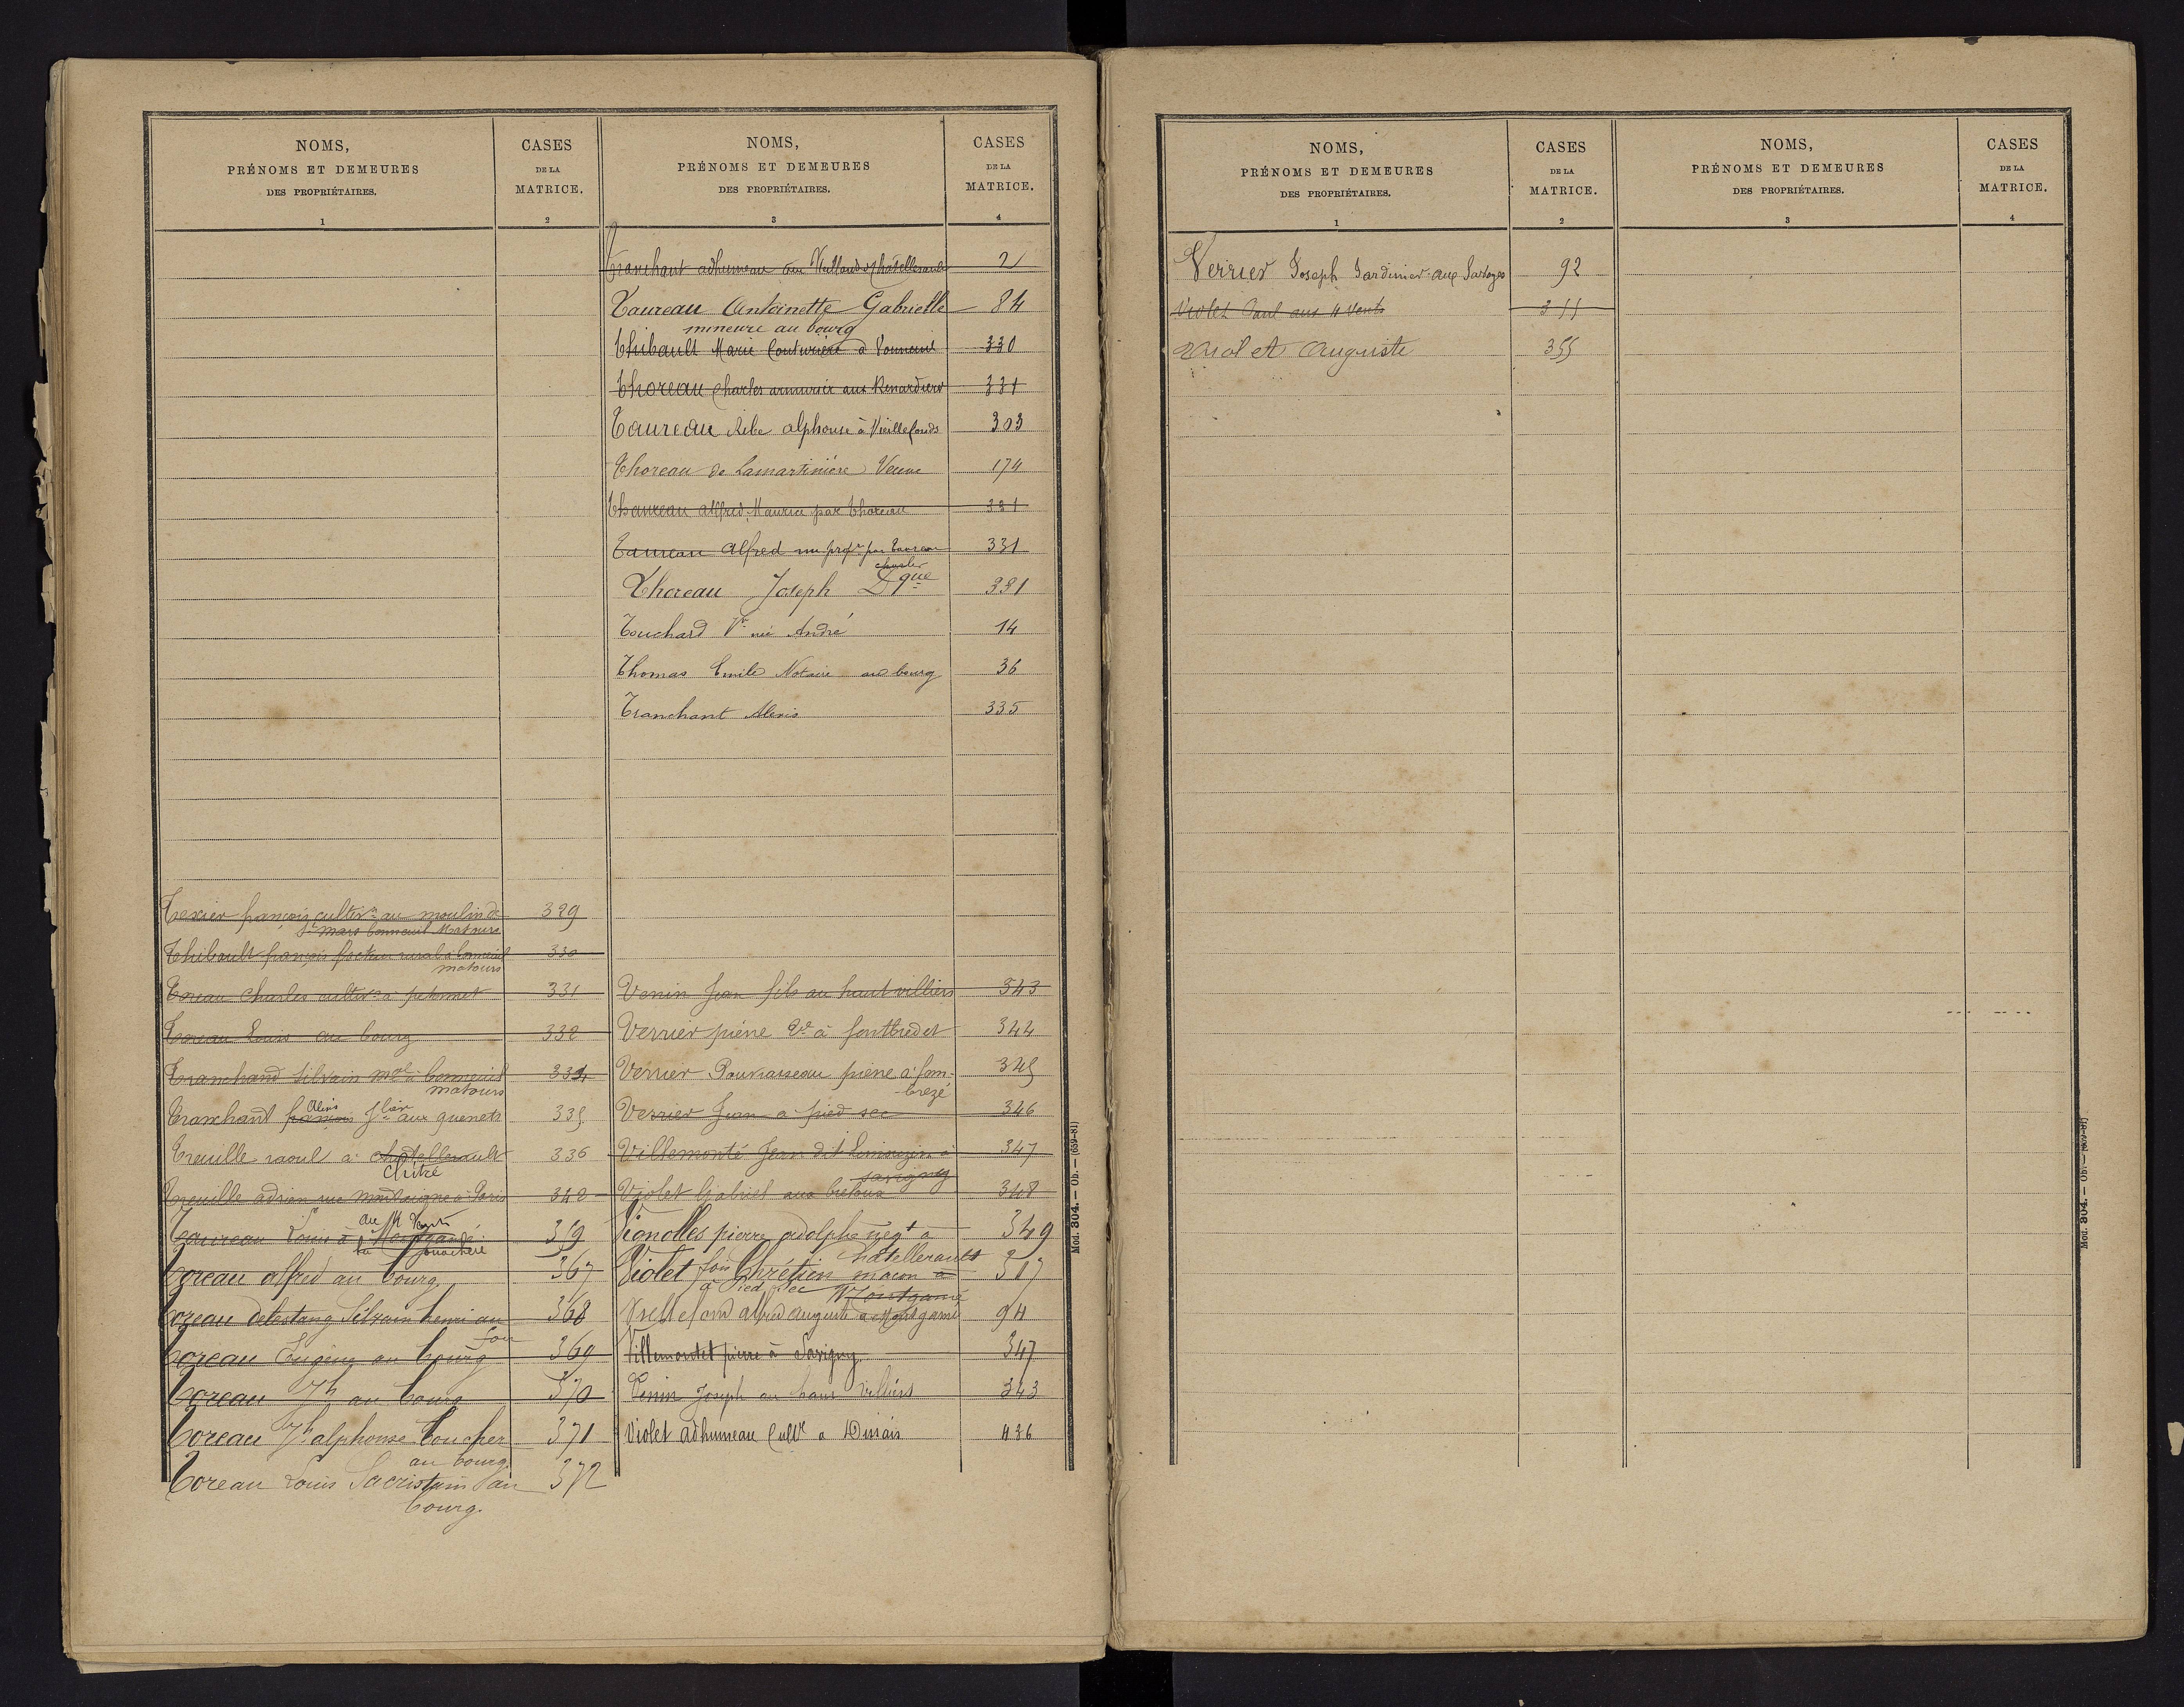 NOMS,
PRÉNOMS ET DEMEURES
DES PROPRIÉTAIRES.
1
CASES
DE LA
MATRICE.
2
Texier françois cultivr au moulin de 329
St mars bonneuil Matours
Thibault françois facteur rural à bonneuil 330
matours
Toreau Charles cultivr à 331
Toreau Louis au bourg 332
Tranchand Silvain md à bonneuil 334
matours
Alexis
Tranchant françois aux quenets 335
Treuille raoul à chatellerault 336
Chitré
Treuille adrien rue montaigne à Paris 342
au 4 Vents
Taureau Louis à Montgamé 359
la
Toreau alfred au bourg. 367
Toreau delestang Silvain henri au 368
fou
Toreau Eugène au bourg 369
Toreau Jh au bourg 370
Toreau Jh alphonse boucher 371
au bourg.
Toreau Louis Sacristain au 372
bourg.
NOMS,
PRÉNOMS ET DEMEURES
DES PROPRIÉTAIRES.
3
CASES
DE LA
MATRICE.
4
Tranchant adhumeau Châtellerault 21
Taureau Antoinette Gabrielle 84
mineure au bourg
Thibault Marie Couturière à Vouneuil 330
Thoreau Charles armurier aux Renardières 331
Taureau Ribe alphonse à Vieillefonds 303
Thoreau de Lamartinière Veuve 174
Thaureau alfred Maurice par Thoreau 331
Taureau Alfred nu propre par Taureau 331
charles
Thoreau Joseph Dque 331
Touchard Ve née André 14
Thomas Emile Notaire au bourg 36
Tranchant Alexis 335
Venin Jean fils au haut villiers 343
Verrier pierre Ve à fontbredet 344
Verrier pierre à fom- 345
brezé
Verrier Jean a pied sec 346
Villemonté Jean dit limouzin à 347
savigny
Violet Gabriel aux 348
Vignolles pierre adolphe negt à 349
Châtellerault
Violet fois Chrétien macon à 317
a Pied Sec Montgamé
Vieillefond alfred auguste a Montgamé 94
Villemontet pierre à Savigny 347
Venin Joseph au haut Villiers 343
Violet adhumeau Cultr a Dissais 436
Mod. 304. — Ob. — (659-81)
NOMS,
PRÉNOMS ET DEMEURES
DES PROPRIÉTAIRES.
1
CASES
DE LA
MATRICE.
2
Verrier Joseph Jardinier aux 92
Violet Paul aux 4 Vents 311
Violet Auguste 355
NOMS,
PRÉNOMS ET DEMEURES
DES PROPRIÉTAIRES.
3
CASES
DE LA
MATRICE.
4
Mod. 304. — Ob. — (659-81)